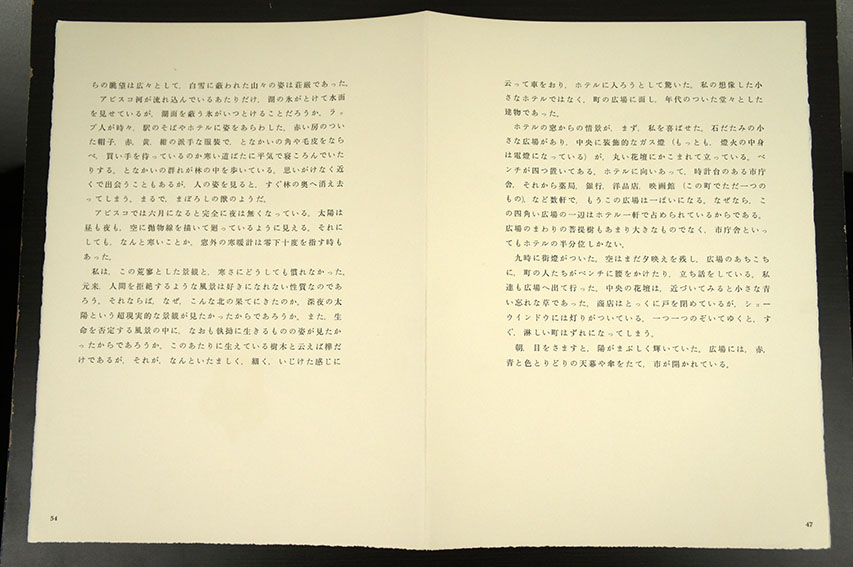 らの眺望は広々として，白雪に蔽われた山々の姿は荘厳であった。
アビスコ河が流れ込んでいるあたりだけ，湖の氷がとけて水面
を見せているが，湖面を蔽う氷がいつとけることだろうか。ラッ
プ人が時々，駅のそばやホテルに姿をあらわした。赤い房のつい
た帽子，赤，黄，紺の派手な服装で，となかいの角や毛皮をなら
べ，買い手を待っているのか寒い道ばたに平気で寝ころんでいた
りする。となかいの群れが林の中を歩いている。思いがけなく近
くで出会うこともあるが，人の姿を見ると，すぐ林の奥へ消え去
ってしまう。まるで，まぼろしの獣のようだ。
アビスコでは六月になると完全に夜は無くなっている。太陽は
昼も夜も，空に抛物線を描いて廻っているように見える。それに
しても，なんと寒いことか。窓外の寒暖計は零下十度を指す時も
あった。
私は，この荒寥とした景観と，寒さにどうしても慣れなかった。
元来，人間を拒絶するような風景は好きになれない性質なのであ
ろう。それならば，なぜ，こんな北の果てにきたのか。深夜の太
陽という超現実的な景観が見たかったからであろうか。また，生
命を否定する風景の中に，なおも執拗に生きるものの姿が見たか
ったからであろうか。このあたりに生えている樹木と云えば樺だ
けであるが，それが，なんといたましく，細く，いじけた感じに
54
云って車をおり，ホテルに入ろうとして驚いた。私の想像した小
さなホテルではなく，町の広場に面し，年代のついた堂々とした
建物であった。
ホテルの窓からの情景が，まず，私を喜ばせた。石だたみの小
さな広場があり，中央に装飾的なガス燈（もっとも，燈火の中身
は電燈になっている）が，丸い花壇にかこまれて立っている。ベ
ンチが四つ置いてある。ホテルに向いあって，時計台のある市庁
舎，それから薬局，銀行，洋品店，映画館（この町でただ一つのも
の）など数軒で，もうこの広場は一ぱいになる。なぜなら，こ
の四角い広場の一辺はホテル一軒で占められているからである。
広場のまわりの菩提樹もあまり大きなものでなく，市庁舎といっ
てもホテルの半分位しかない。
九時に街燈がついた。空はまだ夕映えを残し，広場のあちこち
に，町の人たちがベンチに腰をかけたり，立ち話をしている。私
達も広場へ出て行った。中央の花壇は，近づいてみると小さな青
い忘れな草であった。商店はとっくに戸を閉めているが，ショー
ウインドウには灯りがついている。一つ一つのぞいてゆくと，す
ぐ，淋しい町はずれになってしまう。
朝，目をさますと，陽がまぶしく輝いていた。広場には，赤，
青と色とりどりの天幕や傘をたて，市が開かれている。
47